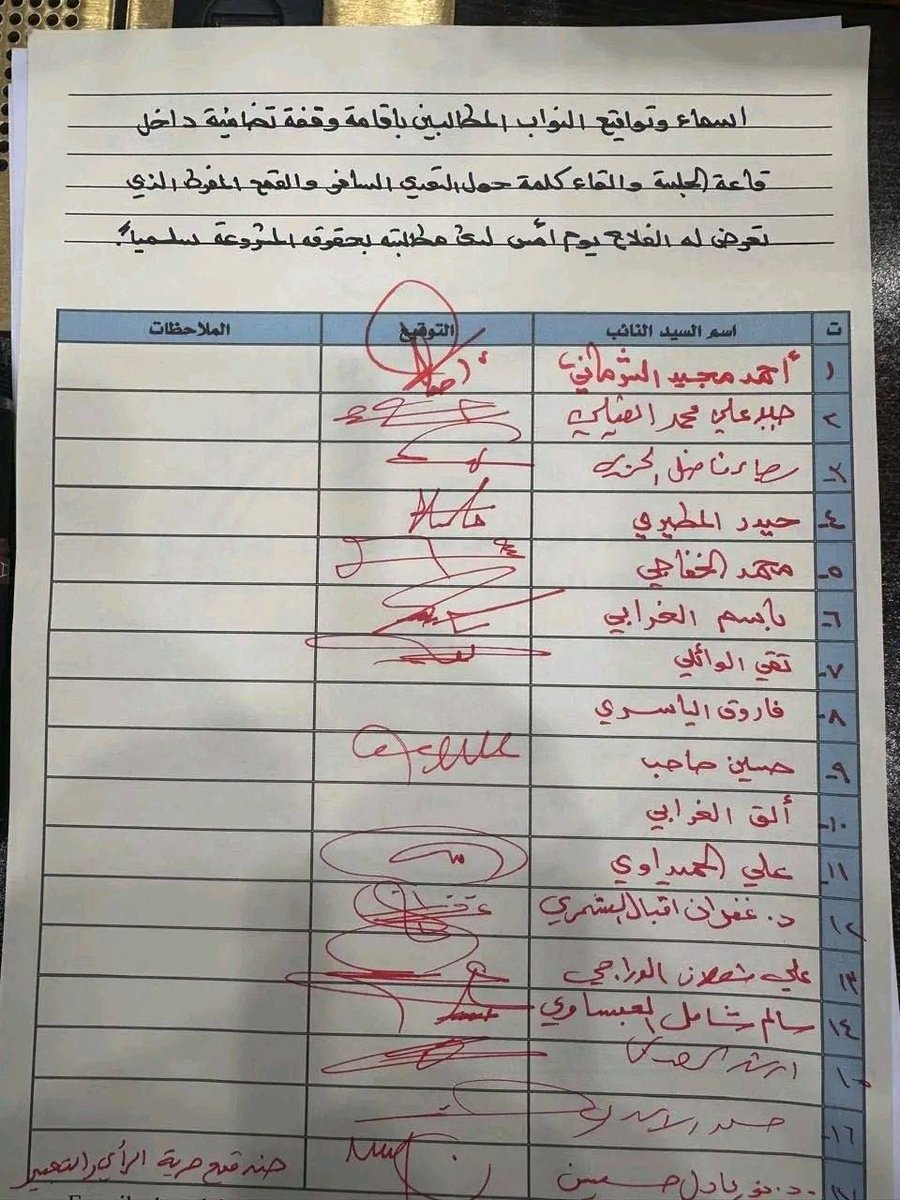 اسماء وتواقيع النواب المطالبين بأقامة وقفة تضامنية داخل
قاعة الجلسة والقاء كلمة حول التعدي السافر والقمع المفرط الذي
تعرض له الفلاح يوم أمس لدى مطالبته بحقوقه المشروعة سلمياً.
ت اسم السيد النائب التوقيع الملاحظات
١ أحمد مجيد الشرماني
٢ علي محمد
٣
٤ حيدر المطيري
٥ محمد الخفاجي
٦ باسم الغرابي
٧ تقي الوائلي
٨ فاروق الياسري
٩ حسين صاحب
١٠ ألق الغرابي
١١ علي الحميداوي
١٢ د. غفران اقبال الشمري
١٣ علي
١٤ سالم العيساوي
١٥ ارشد
١٦
حسين ضد قمع حرية الرأي والتعبير